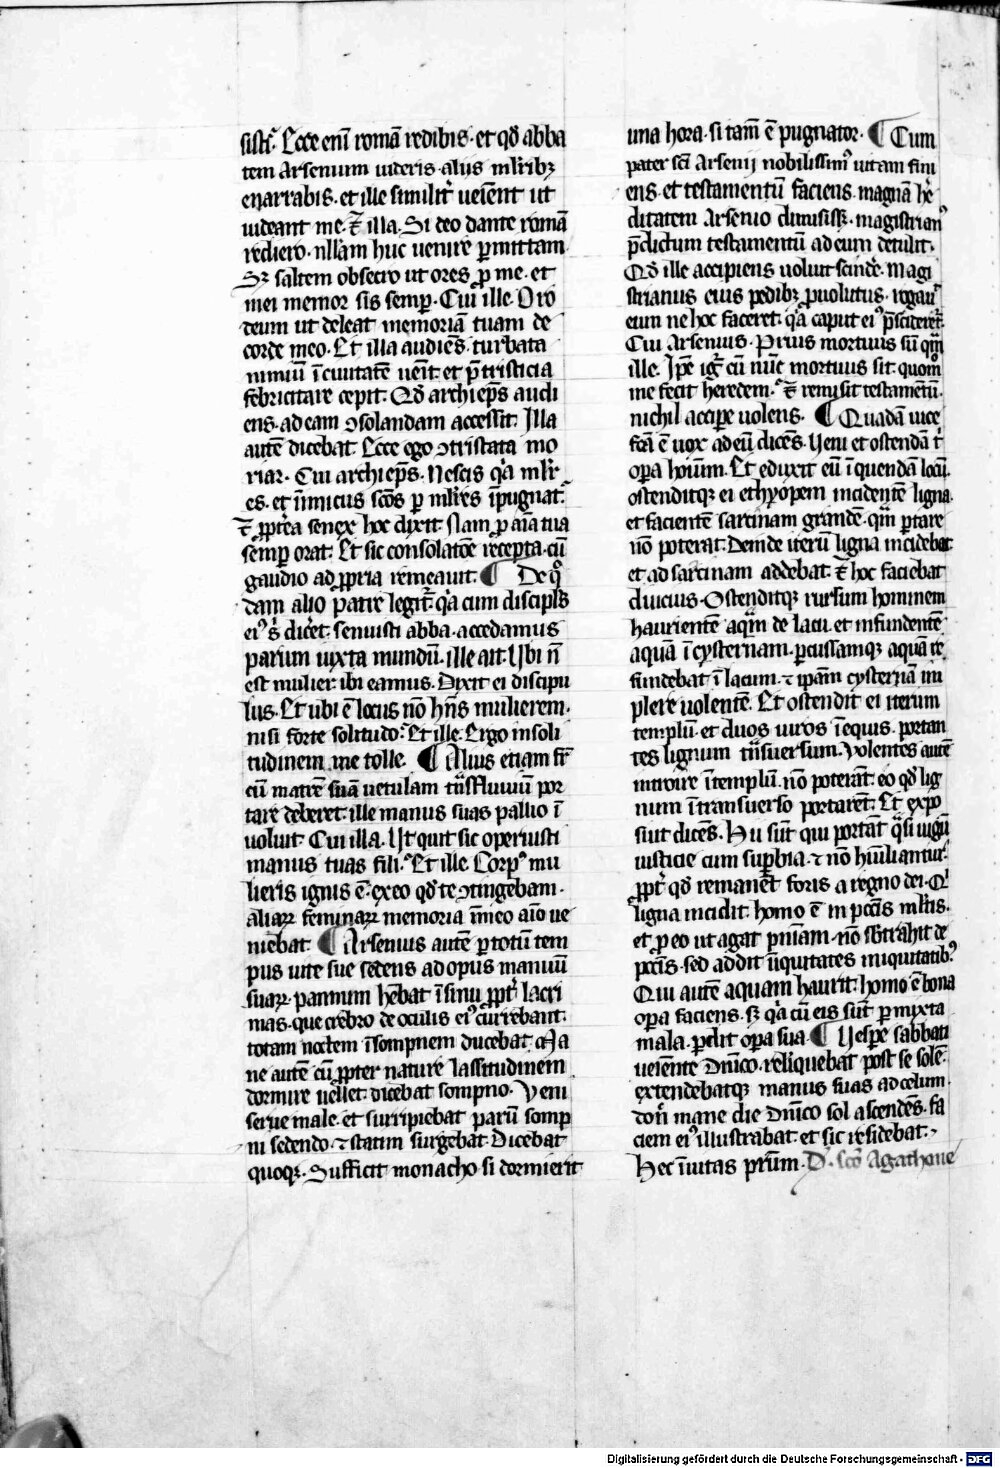 sisti. Ecce eni romā redibis. et qd abba
tem Arsenium uideris alijs mlrib3
enarrabis. et ille similitr ueient ut
uideant me. Et illa. Si deo dante romā
rediero. nllam huc uenire pmittam
S3 saltem obsecro ut ores p me. et
mei memor sis semp. Cui ille. Oro
deum ut deleat memoriā tuam de
corde meo. Et illa audiēs. turbata
nimiū ī ciuitatē uenit. et p tristicia
febricitare cepit. Qd archiepс audi
ens. ad eam ꝯsolandam accessit. Illa
autē dicebat. Ecce ego ꝯtristata mo
riar. Cui archieps. Nescis qa mlr
es. et inimicus scōs p mlres īpugnat.
Et pptea senex hoc dixit. Nam p aīa tua
semp orat. Et sic consolatōe recepta. cū
gaudio ad ppria remeauit. ¶ De qo
dam alio patre legitr. qa cum discipls
ei9 s dicet. senuisti abba. accedamus
parum iuxta mundū. ille ait. Ubi ñ
est mulier. ibi eamus. Dixit ei discipu
lus. Et ubi ē locus nō hñs mulierem.
nisi forte solitudo. Et ille. Ergo in soli
tudinem me tolle. ¶ Alius etiam fr
cū matrē suā uetulam tns fluuiū por
tare deberet. ille manus suas pallio ī
uoluit. Cui illa. Ut quit sic operuisti
manus tuas fili. Et ille. Corp9 mu
lieris ignis ē. ex eo qd te ꝯtingebam.
aliarꝝ feminarꝝ memoria ī meo aīo ue
niebat ¶ Arsenius autē p totū tem
pus uite sue sedens ad opus manuū
suarꝝ. pannum hēbat ī sinu pptr lacri
mas. que crebro de oculis ei9 currebant.
totam noctem īsompnem ducebat. Ma
ne autē cū ppter nature lassitudinem
dormire uellet. dicebat sompno. Veni
serue male. et surripiebat parū somp
ni sedendo. ⁊ statim surgebat. Dicebat
quoqꝫ. Sufficit monacho si dormierit
una hora. si tam ē pugnator. ¶ Cum
pater sci Arsenij nobilissim9 uitam fini
ens. et testamentū faciens. magnā he
ditatem Arsenio dimisissꝫ. magistrian9
pdictum testamentū ad eum detulit.
Qd ille accipiens uoluit scindē. Magi
strianus eius pedibꝫ puolutus. rogau
eum ne hoc faceret. qa caput ei9 pscideret.
Cui Arsenius. Prius mortuus sū qm
ille. Ipē igr cū nūc mortuus sit. quom
me fecit heredem. Et remisit testamētū.
nichil accipe uolens. ¶ Quadā uice
fcā ē uox ad eū dicēs. Veni et ostendā t
opa hoium. Et eduxit eū ī quendā locū.
ostenditqꝫ ei ethyopem incidentē ligna.
et facientē sarcinam grandē. qm ptare
nō poterat. Deinde iterū ligna incidebat
et ad sarcinam addebat. Et hoc faciebat
diucius. Ostenditqꝫ rursum hominem
haurientē aqm de lacu. et infundentē
aquā ī cysternam. p cuī ssamqꝫ aquā re
fundebat ī lacum. ⁊ ipam cysternā im
plere uolentē. Et ostendit ei iterum
templū. et duos uiros ī equis. portan
tes lignum tnsuersum. Volentes autē
introire ī templū. nō poterāt. eo qd lig
num ī transuerso portarēt. Et expo
siuit dicēs. Hii sūt qui portāt qsi iugū
iusticie cum supbia. ⁊ nō hūiliantur.
ppt qd remanēt foris a regno dei. Qi
ligna incidit. homo ē in pccīs mltis.
et p eo ut agat pniam. nō sbtrahit de
pccīs. sed addit iniquitates iniquitatib9
Qui autē aquam haurit. homo ē bona
opa faciens. sꝫ qa cū eis sūt pmixta
mala. pdit opa sua. ¶ Vespe sabbati
ueiente dnico. relīquebat post se solē.
extendebatqꝫ manus suas ad celum
don mane die dnico sol ascendēs. fa
ciem ei9 illustrabat. et sic residebat.
Hec ī uitas prum. D sco Agathone
Digitalisierung gefördert durch die Deutsche Forschungsgemeinschaft - DFG